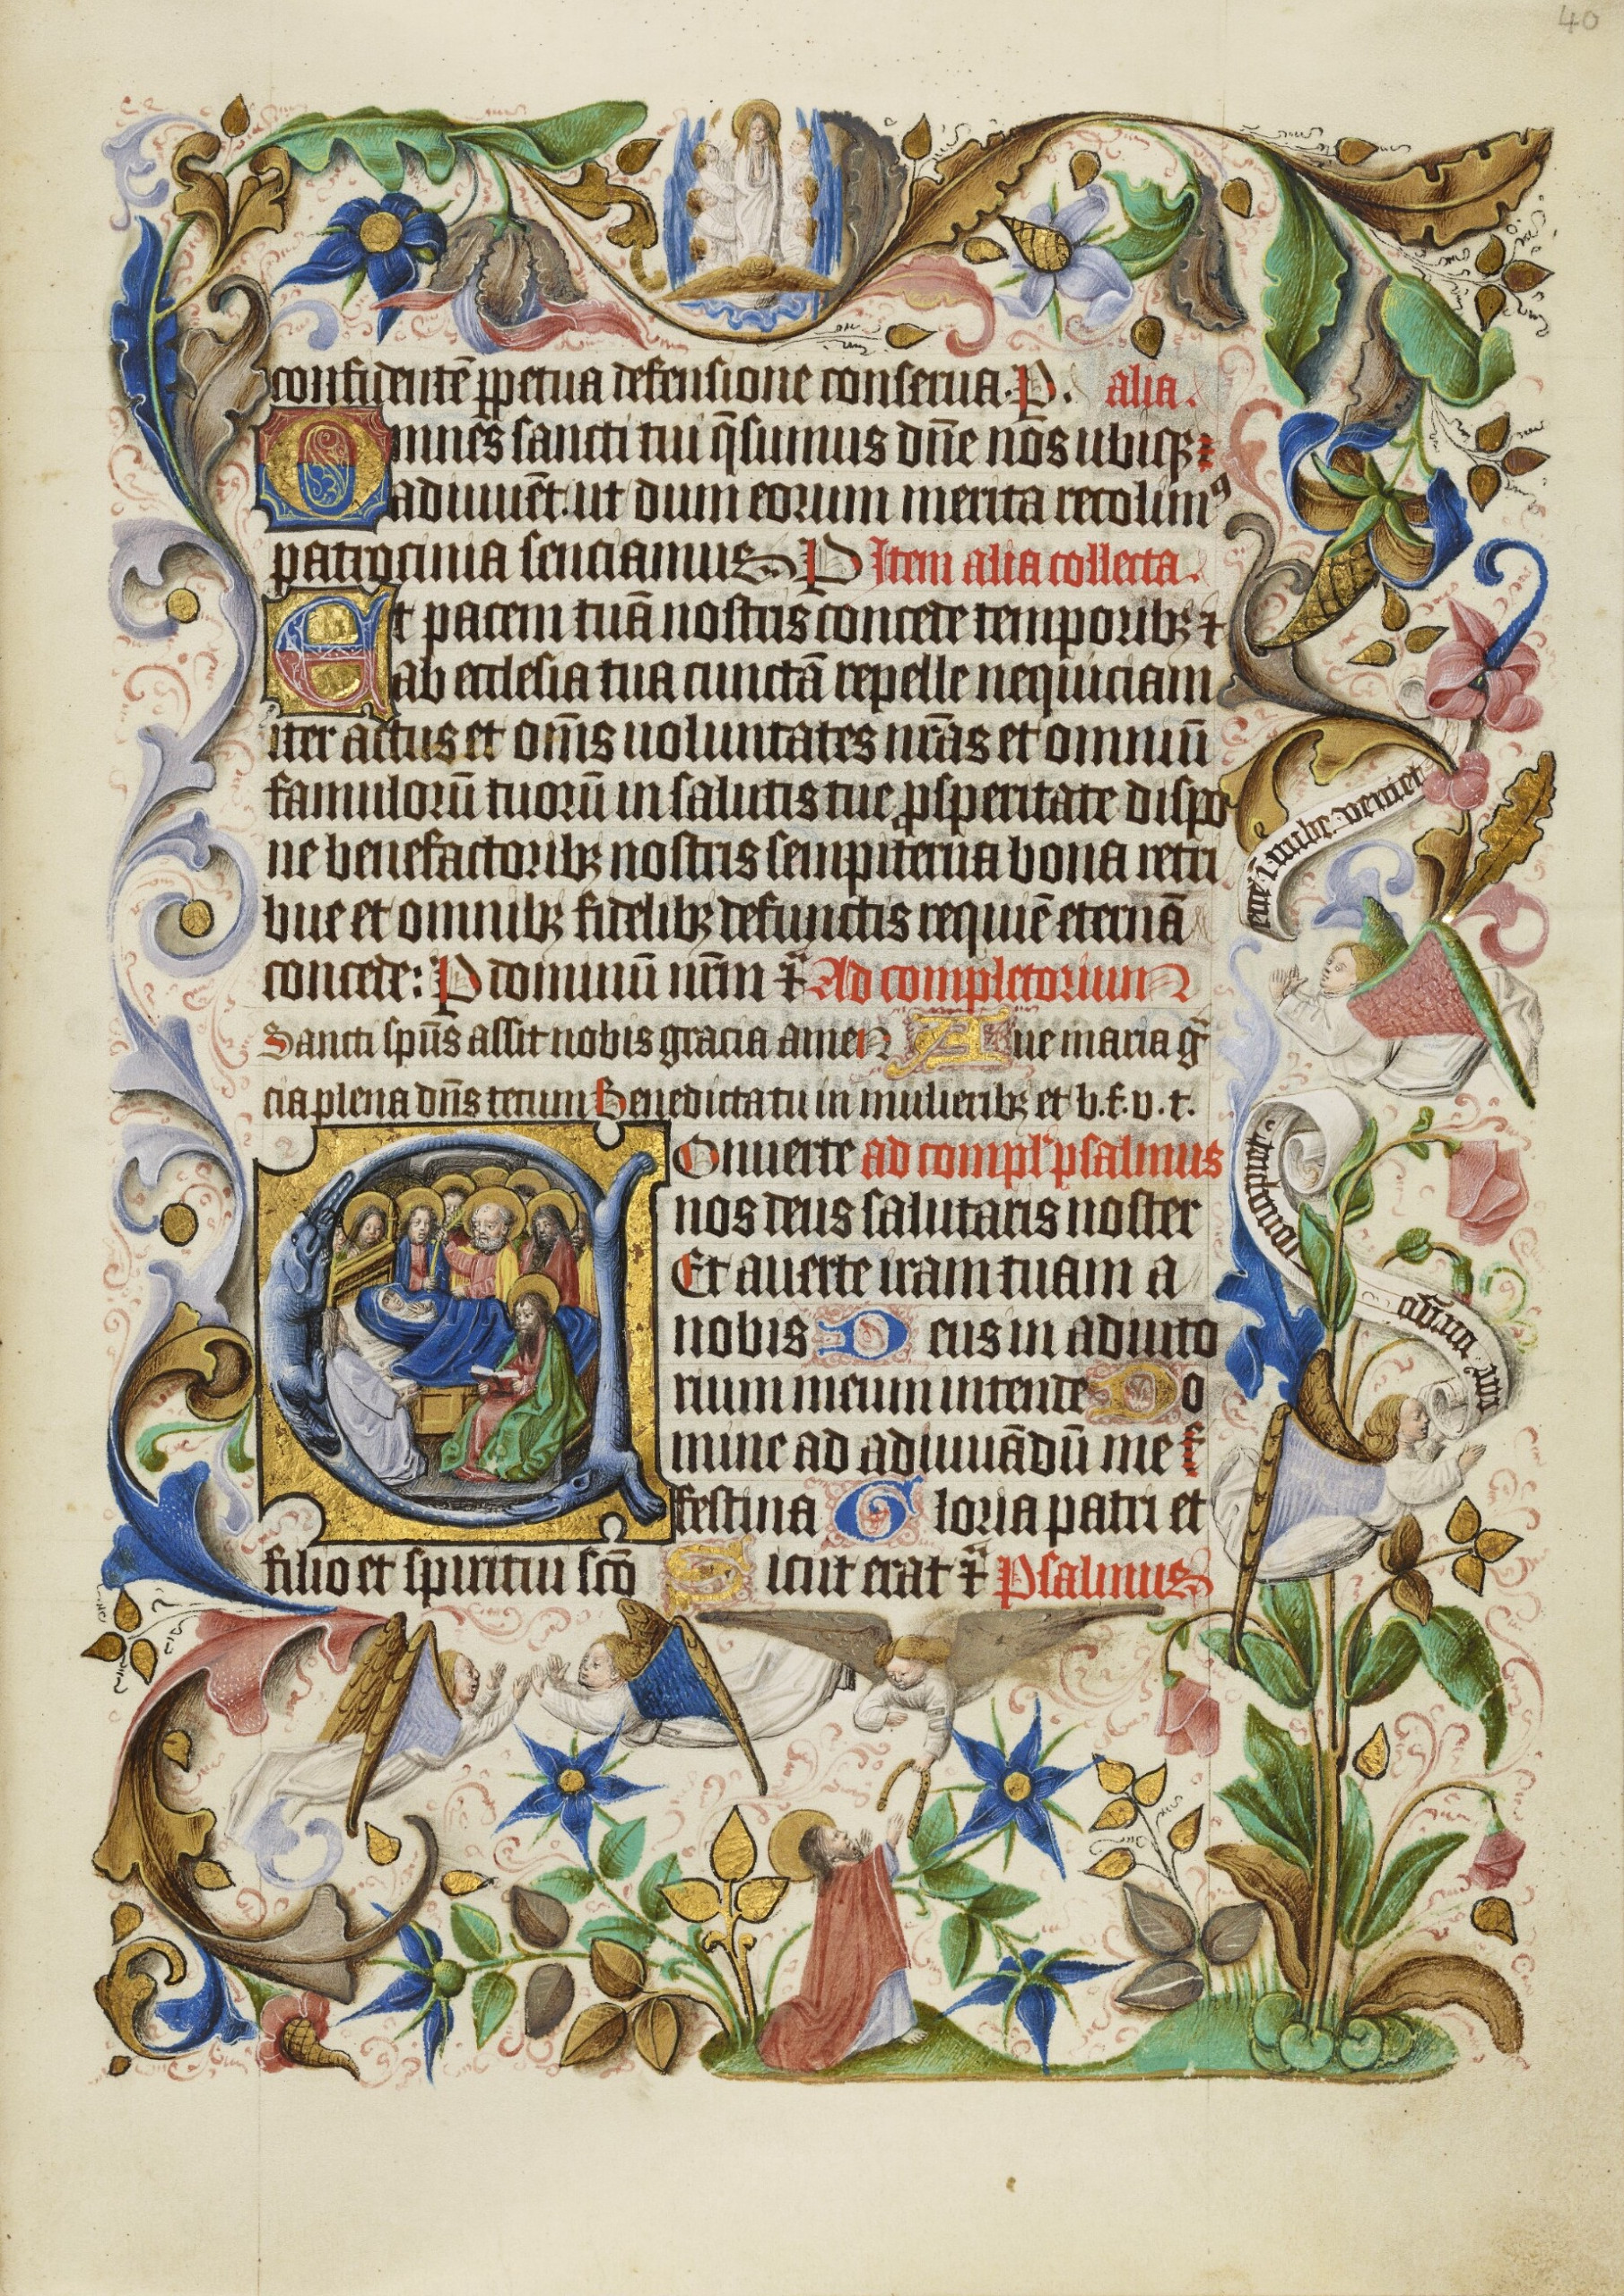 40
confidentē ꝑpetua defensione conserua. P. alia.
Omnes sancti tui q̄sumus dn̄e nōs ubiqꝫ
adiuuēt. ut dum eorum merita recolimꝰ
patrocinia senciamus P Item alia collecta.
Et pacem tuā nostris concede temporibꝫ ⁊
ab ecclesia tua cunctā repelle nequiciam
iter actus et om̄s uoluntates nr̄as et omniū
famulorū tuorū in salutis tue ꝓsperitate dispo
ne benefactoribꝫ nostris sempiterna bona retri
bue et omnibꝫ fidelibꝫ defunctis requiē eternā
concede: P dominū nr̄m ⁊c̄ Ad completorium
Sancti sp̄us assit nobis gracia amen Aue maria gr̄
cia plena dn̄s tecum Benedicta tu in mulieribꝫ et b.f.v.t.
Conuerte ad compl' psalmus
nos deus salutaris noster
Et auerte iram tuam a
nobis Deus in adiuto
rium meum intende Do
mine ad adiuuādū me
festina Gloria patri et
filio et spiritui sc̄o Sicut erat ⁊c̄ Psalmus
ecce ī nube veniet